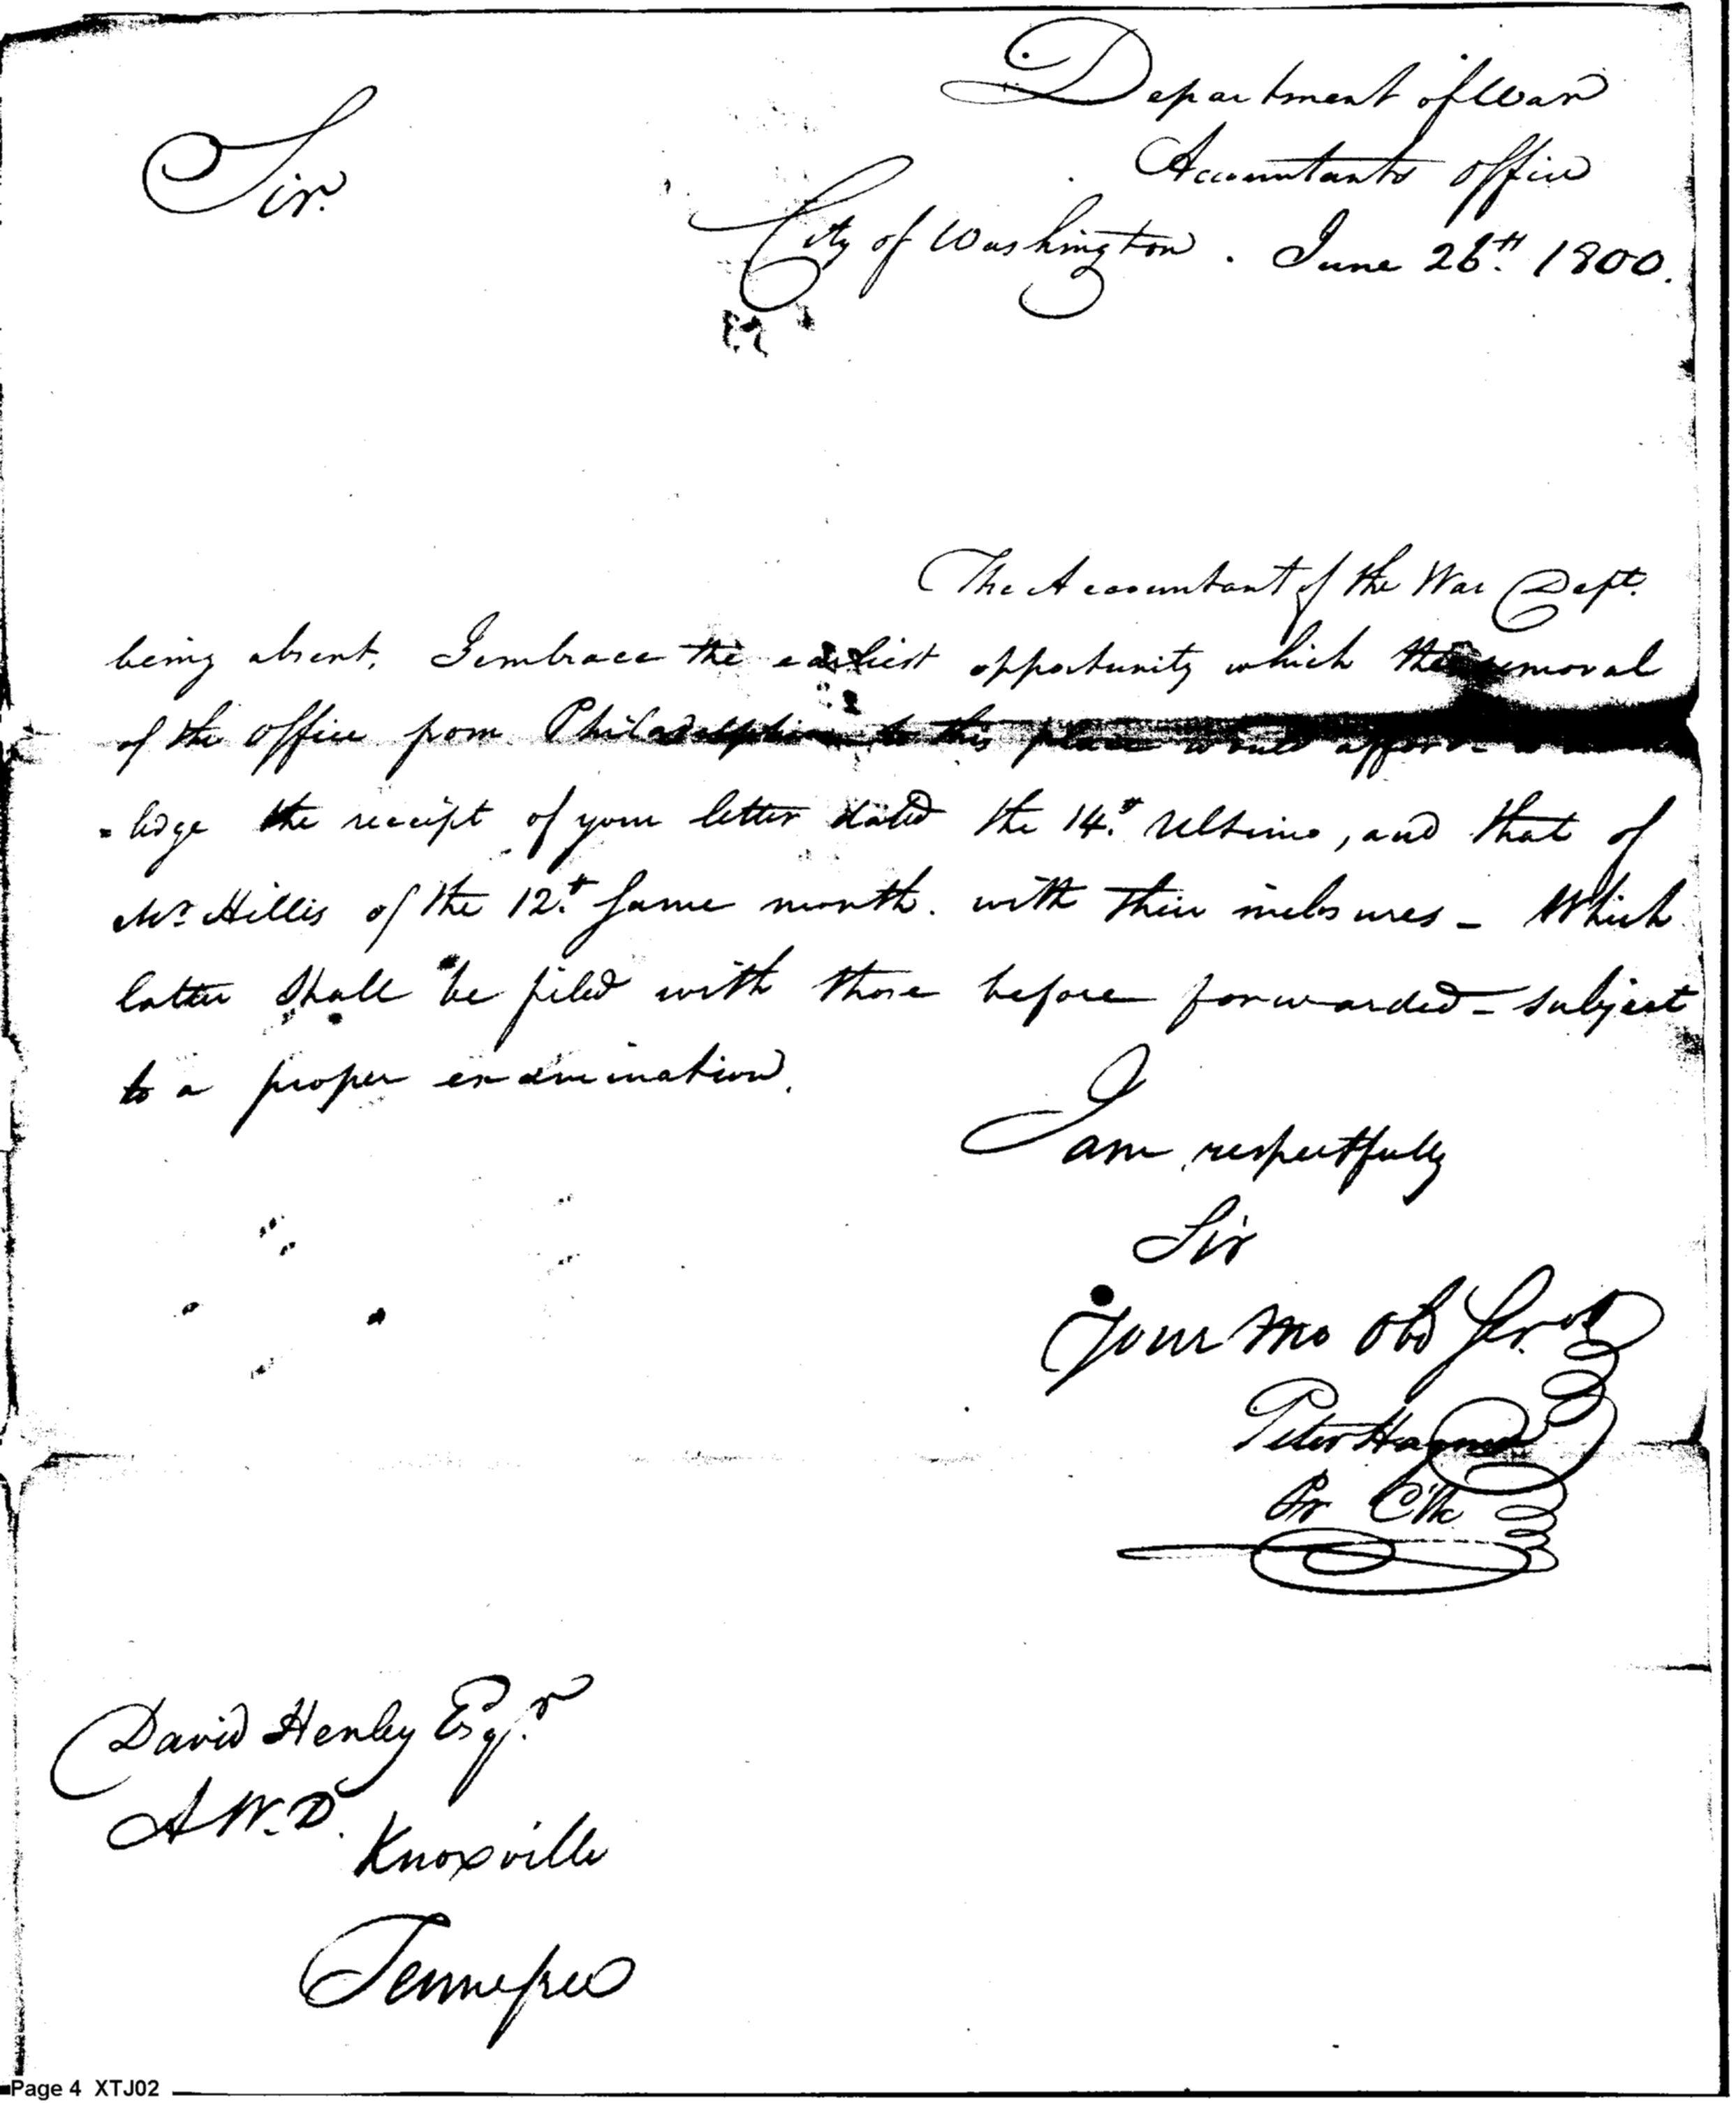 Department of War
Sir.
Accountants office
City of Washington. June 26th 1800.
The Accountant of the War Dept.
being absent, I embrace the earliest opportunity which the removal
of the office from Philadelphia to this place would afford
-ledge the receipt of your letter dated the 14t Ultimo, and that of
Mr Hillis of the 12t same month. with their inclosures - Which
latter shall be filed with those before forwarded - subject
to a proper examination.
I am respectfully
Sir
Your Mo Obd Servt
Peter Hagner
Pr Clk
David Henley Esqr.
A. W. D.
Knoxville
Tennessee
Page 4 XTJ02